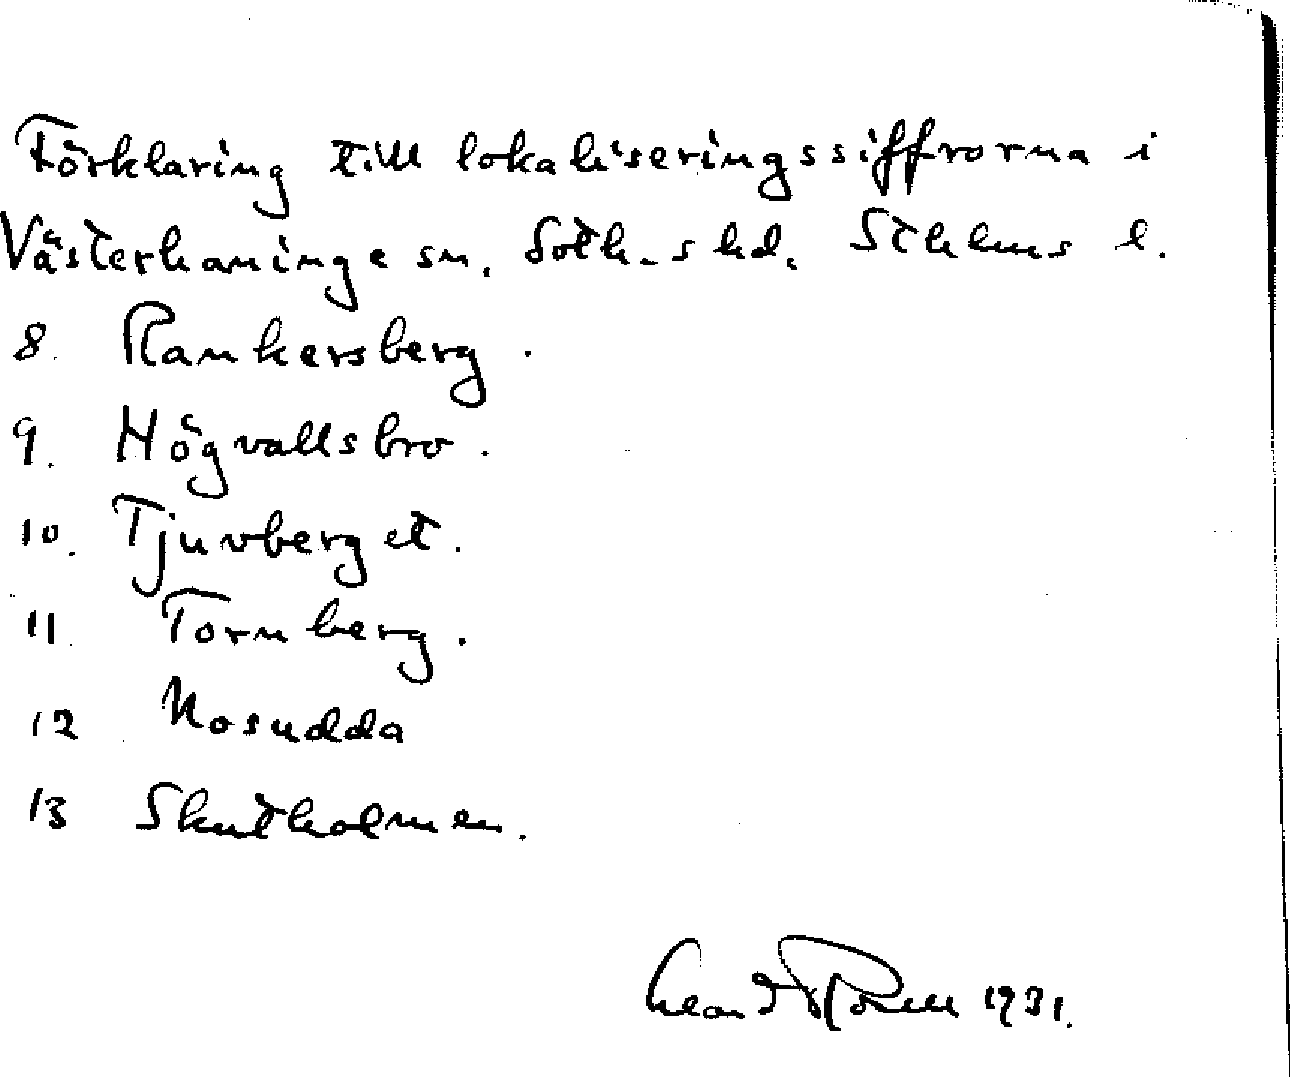 Förklaring till lokaliseringssiffrorna i
Västerhaninge sn, Soth-s hd. Sthlms l.
8. Rankersberg.
9. Högvallsbro.
10. Tjuvberget.
11. Tornberg.
12 Nosudda
13 Skutholmen.
1931.